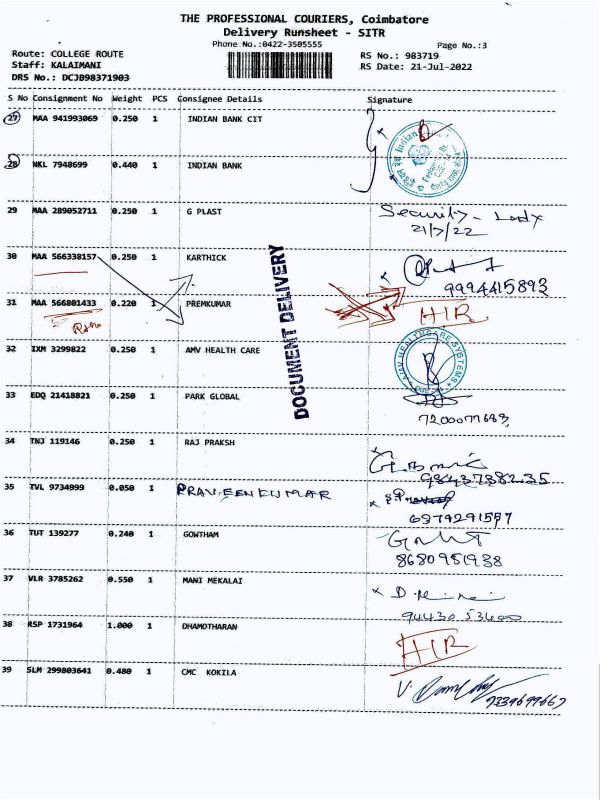 THE PROFESSIONAL COURIERS, Coimbatore
Delivery Runsheet - SITR
Phone No.:0422-3505555
Page No.:3
Route: COLLEGE ROUTE
RS No.: 983719
Staff: KALAIMANI
RS Date: 21-Jul-2022
DRS No.: DCJB98371903
S No Consignment No Weight PCS Consignee Details Signature
27 MAA 941993069 0.250 1 INDIAN BANK CIT
28 NKL 7948699 0.440 1 INDIAN BANK
29 MAA 289052711 0.250 1 G PLAST Security - Lady
21/7/22
30 MAA 566338157 0.250 1 KARTHICK
9994415893
31 MAA 566801433 0.220 1 PREMKUMAR HIR
DOCUMENT DELIVERY
32 IXM 3299822 0.250 1 AMV HEALTH CARE
AMV HEALTHCARE SYSTEMS
33 EDQ 21418821 0.250 1 PARK GLOBAL
7200077683
34 TNJ 119146 0.250 1 RAJ PRAKSH
9843788235
35 TVL 9734999 0.050 1 PRAVEENKUMAR
6374291557
36 TUT 139277 0.240 1 GOWTHAM
8680951938
37 VLR 3785262 0.550 1 MANI MEKALAI
38 RSP 1731964 1.000 1 DHAMOTHARAN HIR
39 SLM 299803641 0.480 1 CMC KOKILA